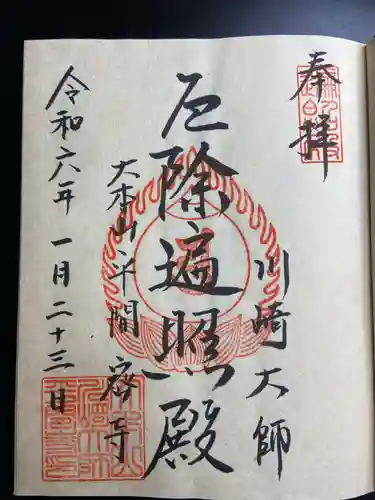 奉拝
川崎大師
厄除遍照殿
大本山平間密寺
令和六年一月二十三日